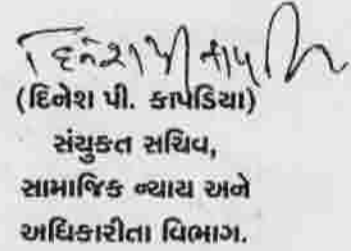 (દિનેશ પી. કાપડિયા)
સંયુકત સચિવ,
સામાજિક ન્યાય અને
અધિકારીતા વિભાગ.